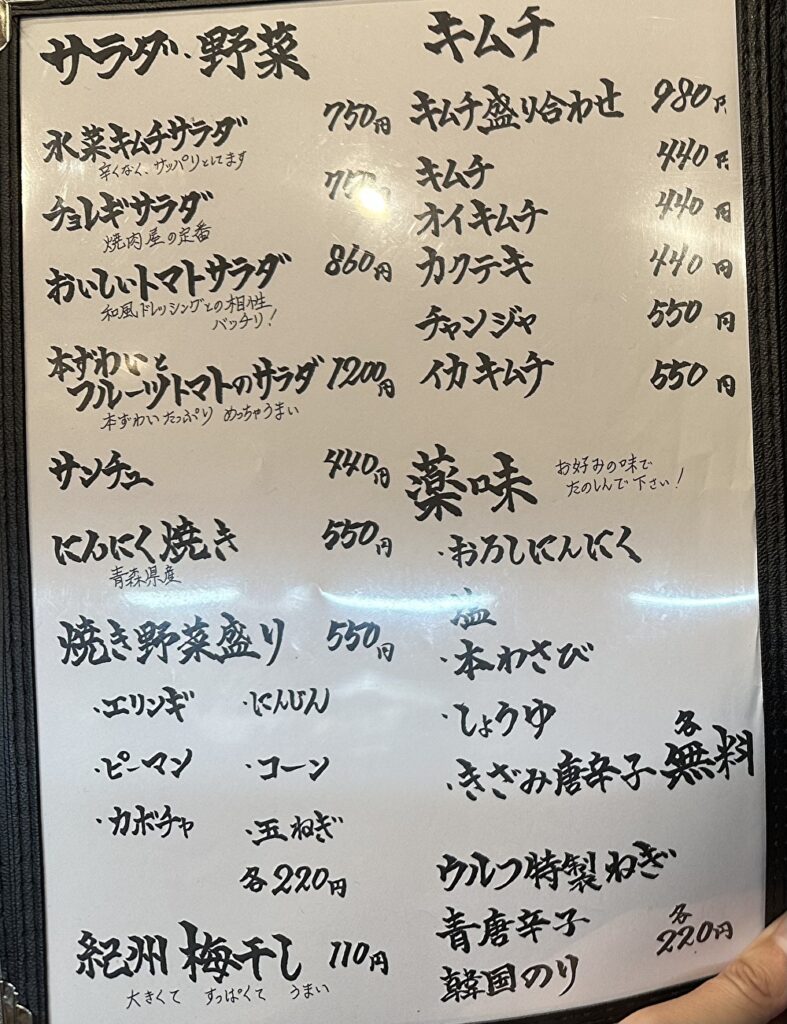 サラダ・野菜
水菜キムチサラダ 750円
辛くなく、サッパリとしてます
チョレギサラダ 750円
焼肉屋の定番
おいしいトマトサラダ 860円
和風ドレッシングとの相性
バッチリ!
本ずわいと
フルーツトマトのサラダ 1200円
本ずわいたっぷり めっちゃうまい
サンチュ 440円
にんにく焼き 550円
青森県産
焼き野菜盛り 550円
・エリンギ ・にんじん
・ピーマン ・コーン
・カボチャ ・玉ねぎ
各220円
紀州 梅干し 110円
大きくて すっぱくて うまい
キムチ
キムチ盛り合わせ 980円
キムチ 440円
オイキムチ 440円
カクテキ 440円
チャンジャ 550円
イカキムチ 550円
薬味 お好みの味で
たのしんで下さい!
・おろしにんにく
塩
・本わさび
・しょうゆ
・きざみ唐辛子 各無料
ウルフ特製ねぎ
青唐辛子 各220円
韓国のり